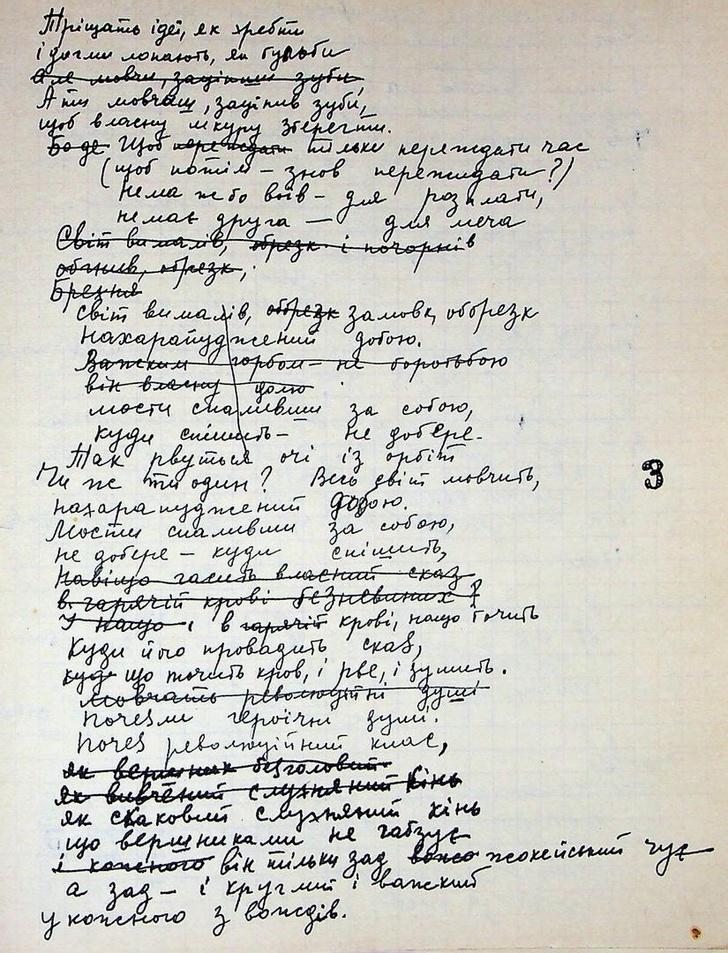 Тріщать ідеї, як хребти
і догми лопають, як бульби
Але мовчи, заціпивши зуби,
А ти мовчиш, зацінив зуби,
щоб власну шкуру зберегти.
Щоб переждати тільки переждати час
(щоб потім – знов переждати?)
Нема ж бо воїв – для розплати,
немає друга — для меча
Світ вималів, обрезк і почорнів
обрезк,
Брехня
світ вималів, обрезк замовк, обрезк
нахарапуджений добою.
Важким горбом – не боротьбою
він власну долю
мости спаливши за собою,
куди спішить – не добере.
Так рвуться очі із орбіт
Чи ж ти один? Весь світ мовчить,
нахарапуджений добою.
Мости спаливши за собою,
не добере – куди спішить,
Навіщо гасить власний сказ
в гарячій крові безневинних?
У нащо і в гарячій крові, нащо точить
Куди його провадить сказ,
що точить кров, і рве, і зумить.
Мовчать революційні думи
Почезли героїчні думи.
Почез революційний клас,
як вершник безголовий
як вивчений слухняний кінь
як скаковий слухняний кінь
що вершниками не гарбує
і кожного він тільки зад жокейський чує
а зад – і круглий і важкий
у кожного з вождів.
3